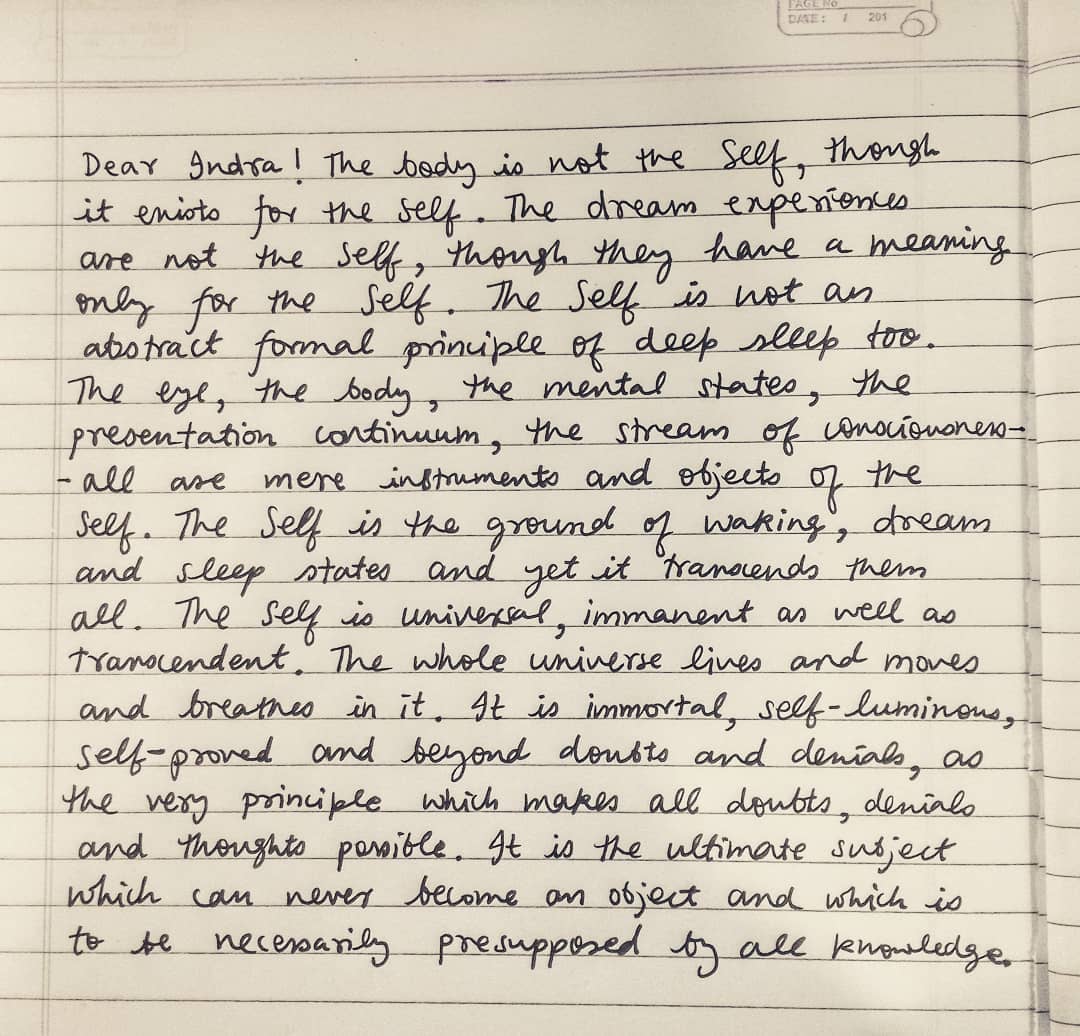 PAGE NO
DATE: / 201
5
Dear Indra! The body is not the Self, though
it exists for the Self. The dream experiences
are not the Self, though they have a meaning
only for the Self. The Self is not an
abstract formal principle of deep sleep too.
The eye, the body, the mental states, the
presentation continuum, the stream of consciousness-
- all are mere instruments and objects of the
Self. The Self is the ground of waking, dream
and sleep states and yet it transcends them
all. The Self is universal, immanent as well as
transcendent. The whole universe lives and moves
and breathes in it. It is immortal, self-luminous,
self-proved and beyond doubts and denials, as
the very principle which makes all doubts, denials
and thoughts possible. It is the ultimate subject
which can never become an object and which is
to be necessarily presupposed by all knowledge.